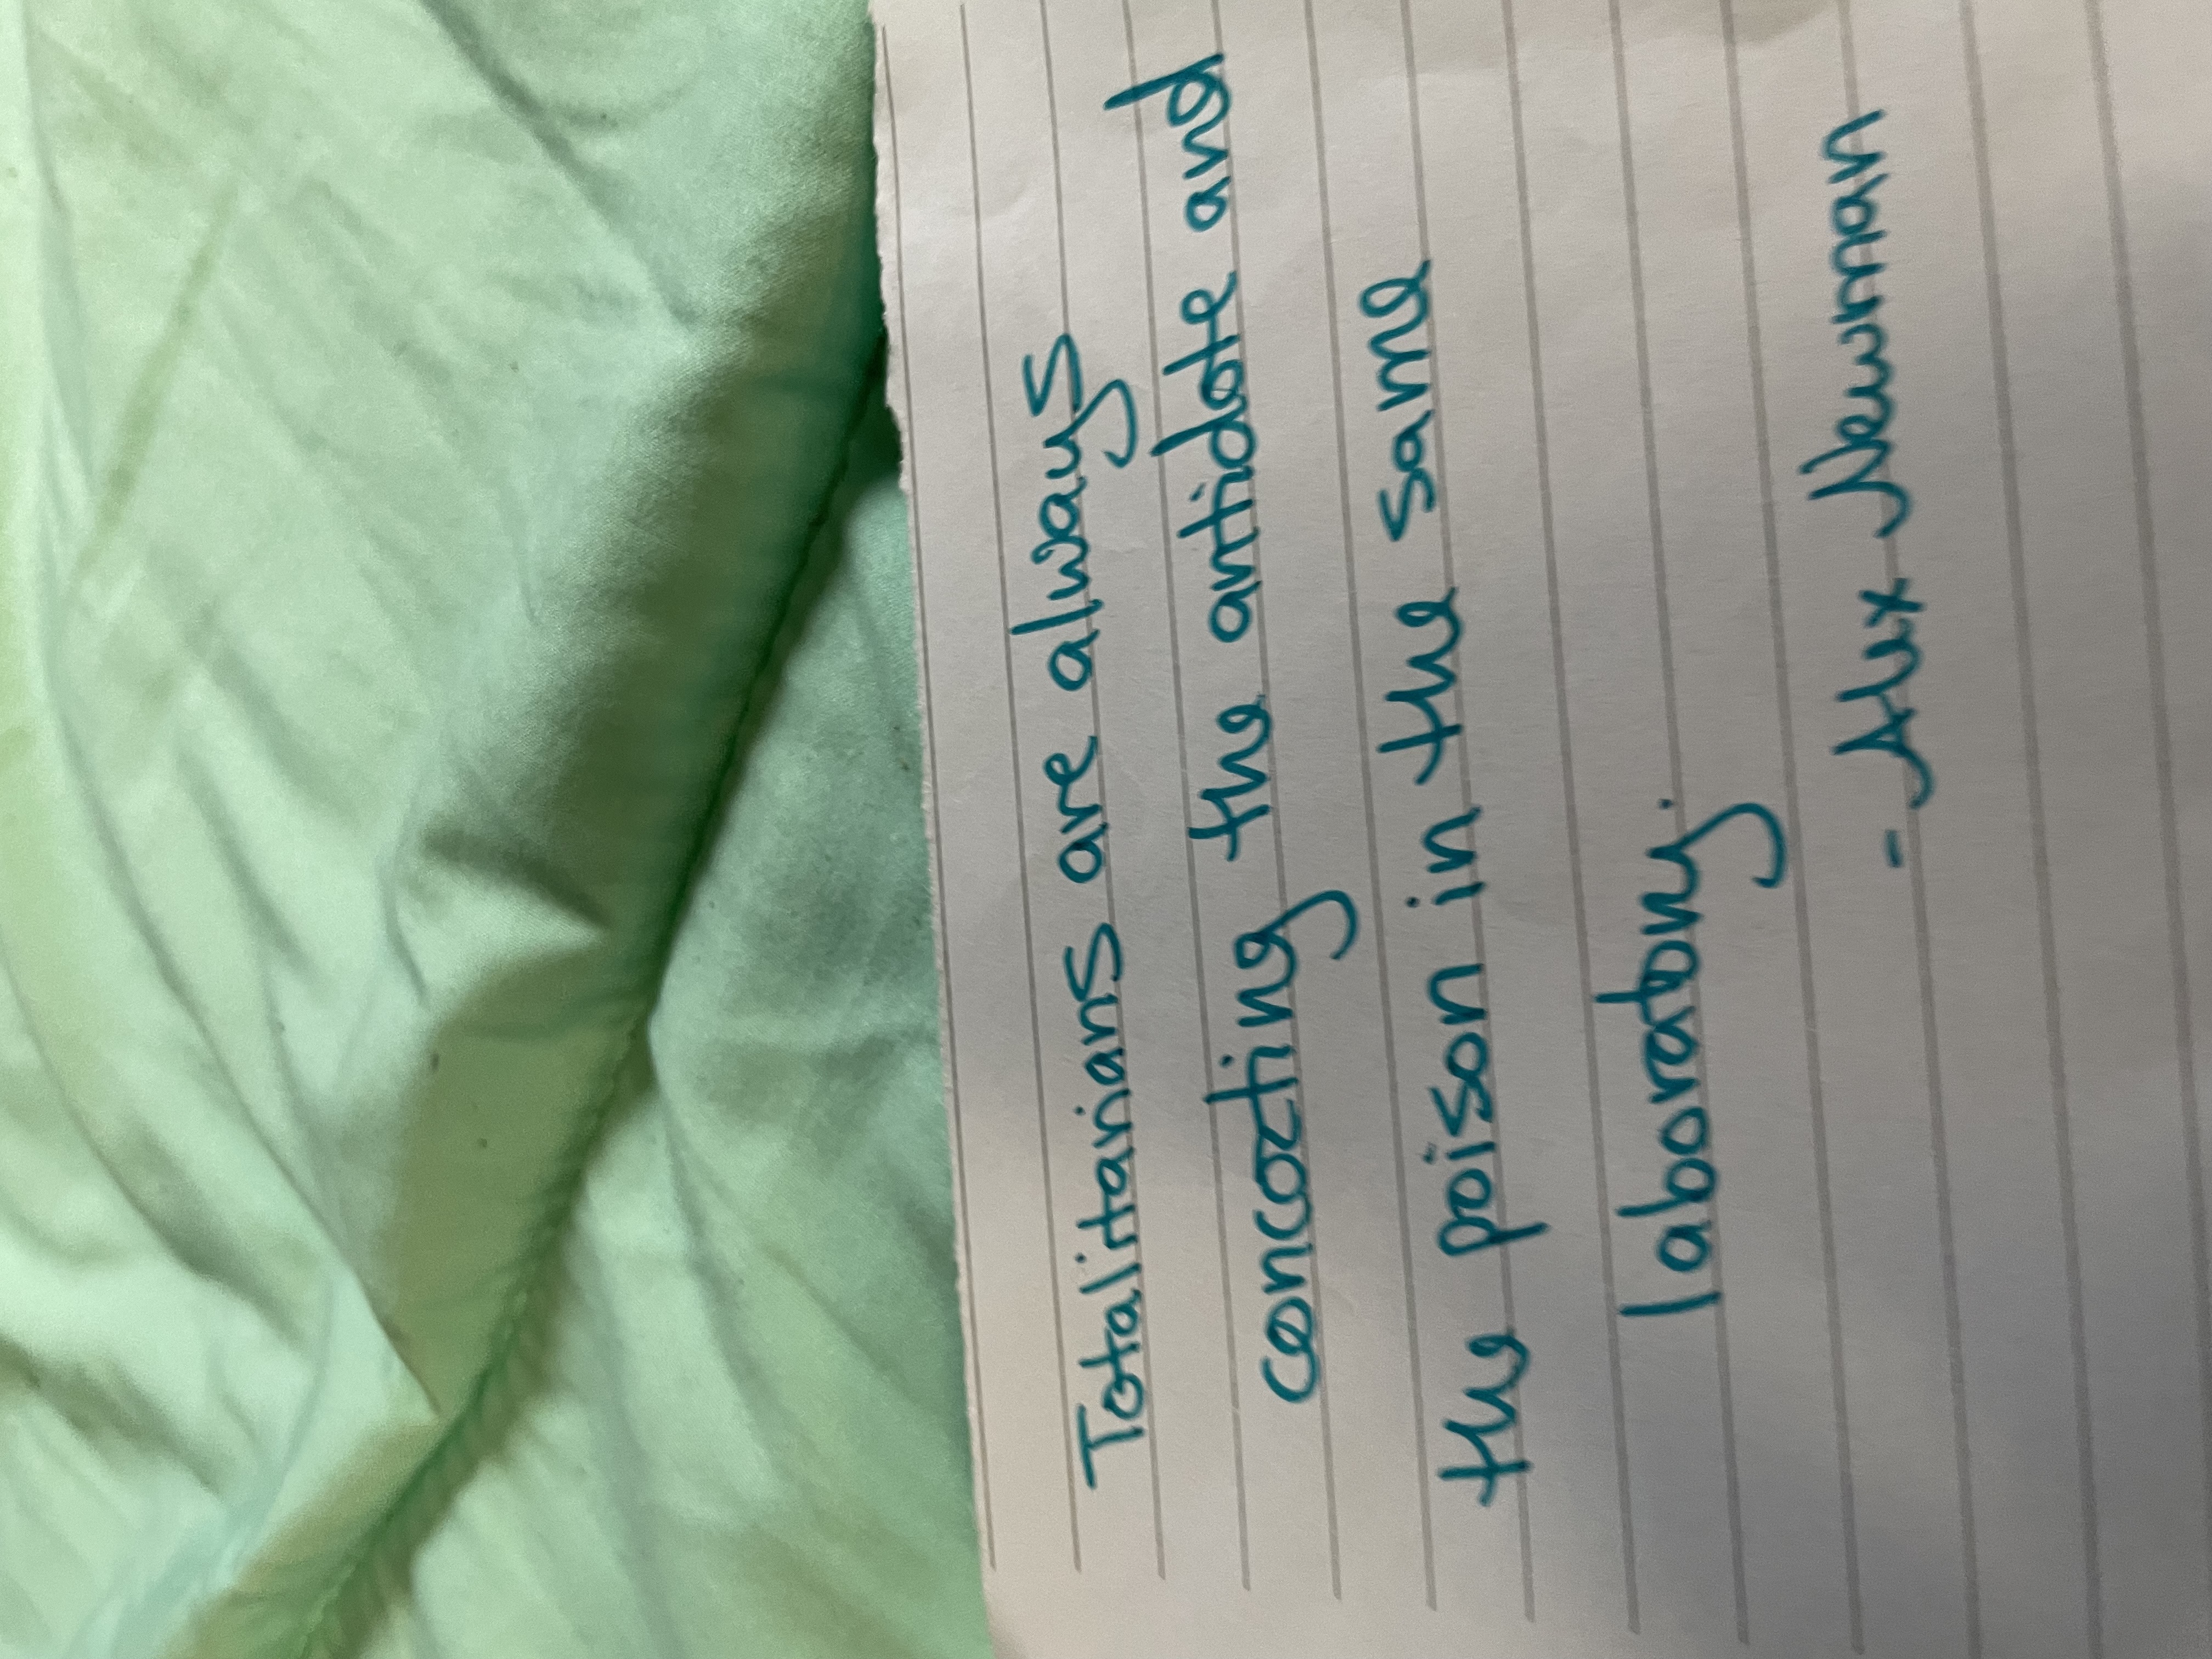 Totalitarians are always
concocting the antidote and
the poison in the same
laboratory.
- Alex Newman